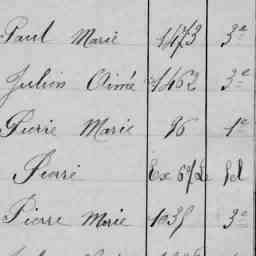 Paul Marie 1473 3e
Julien Aimé 1462 3e
Pierre Marie 96 1e
Pierre Ex 6%
Pierre Marie 1035 3e